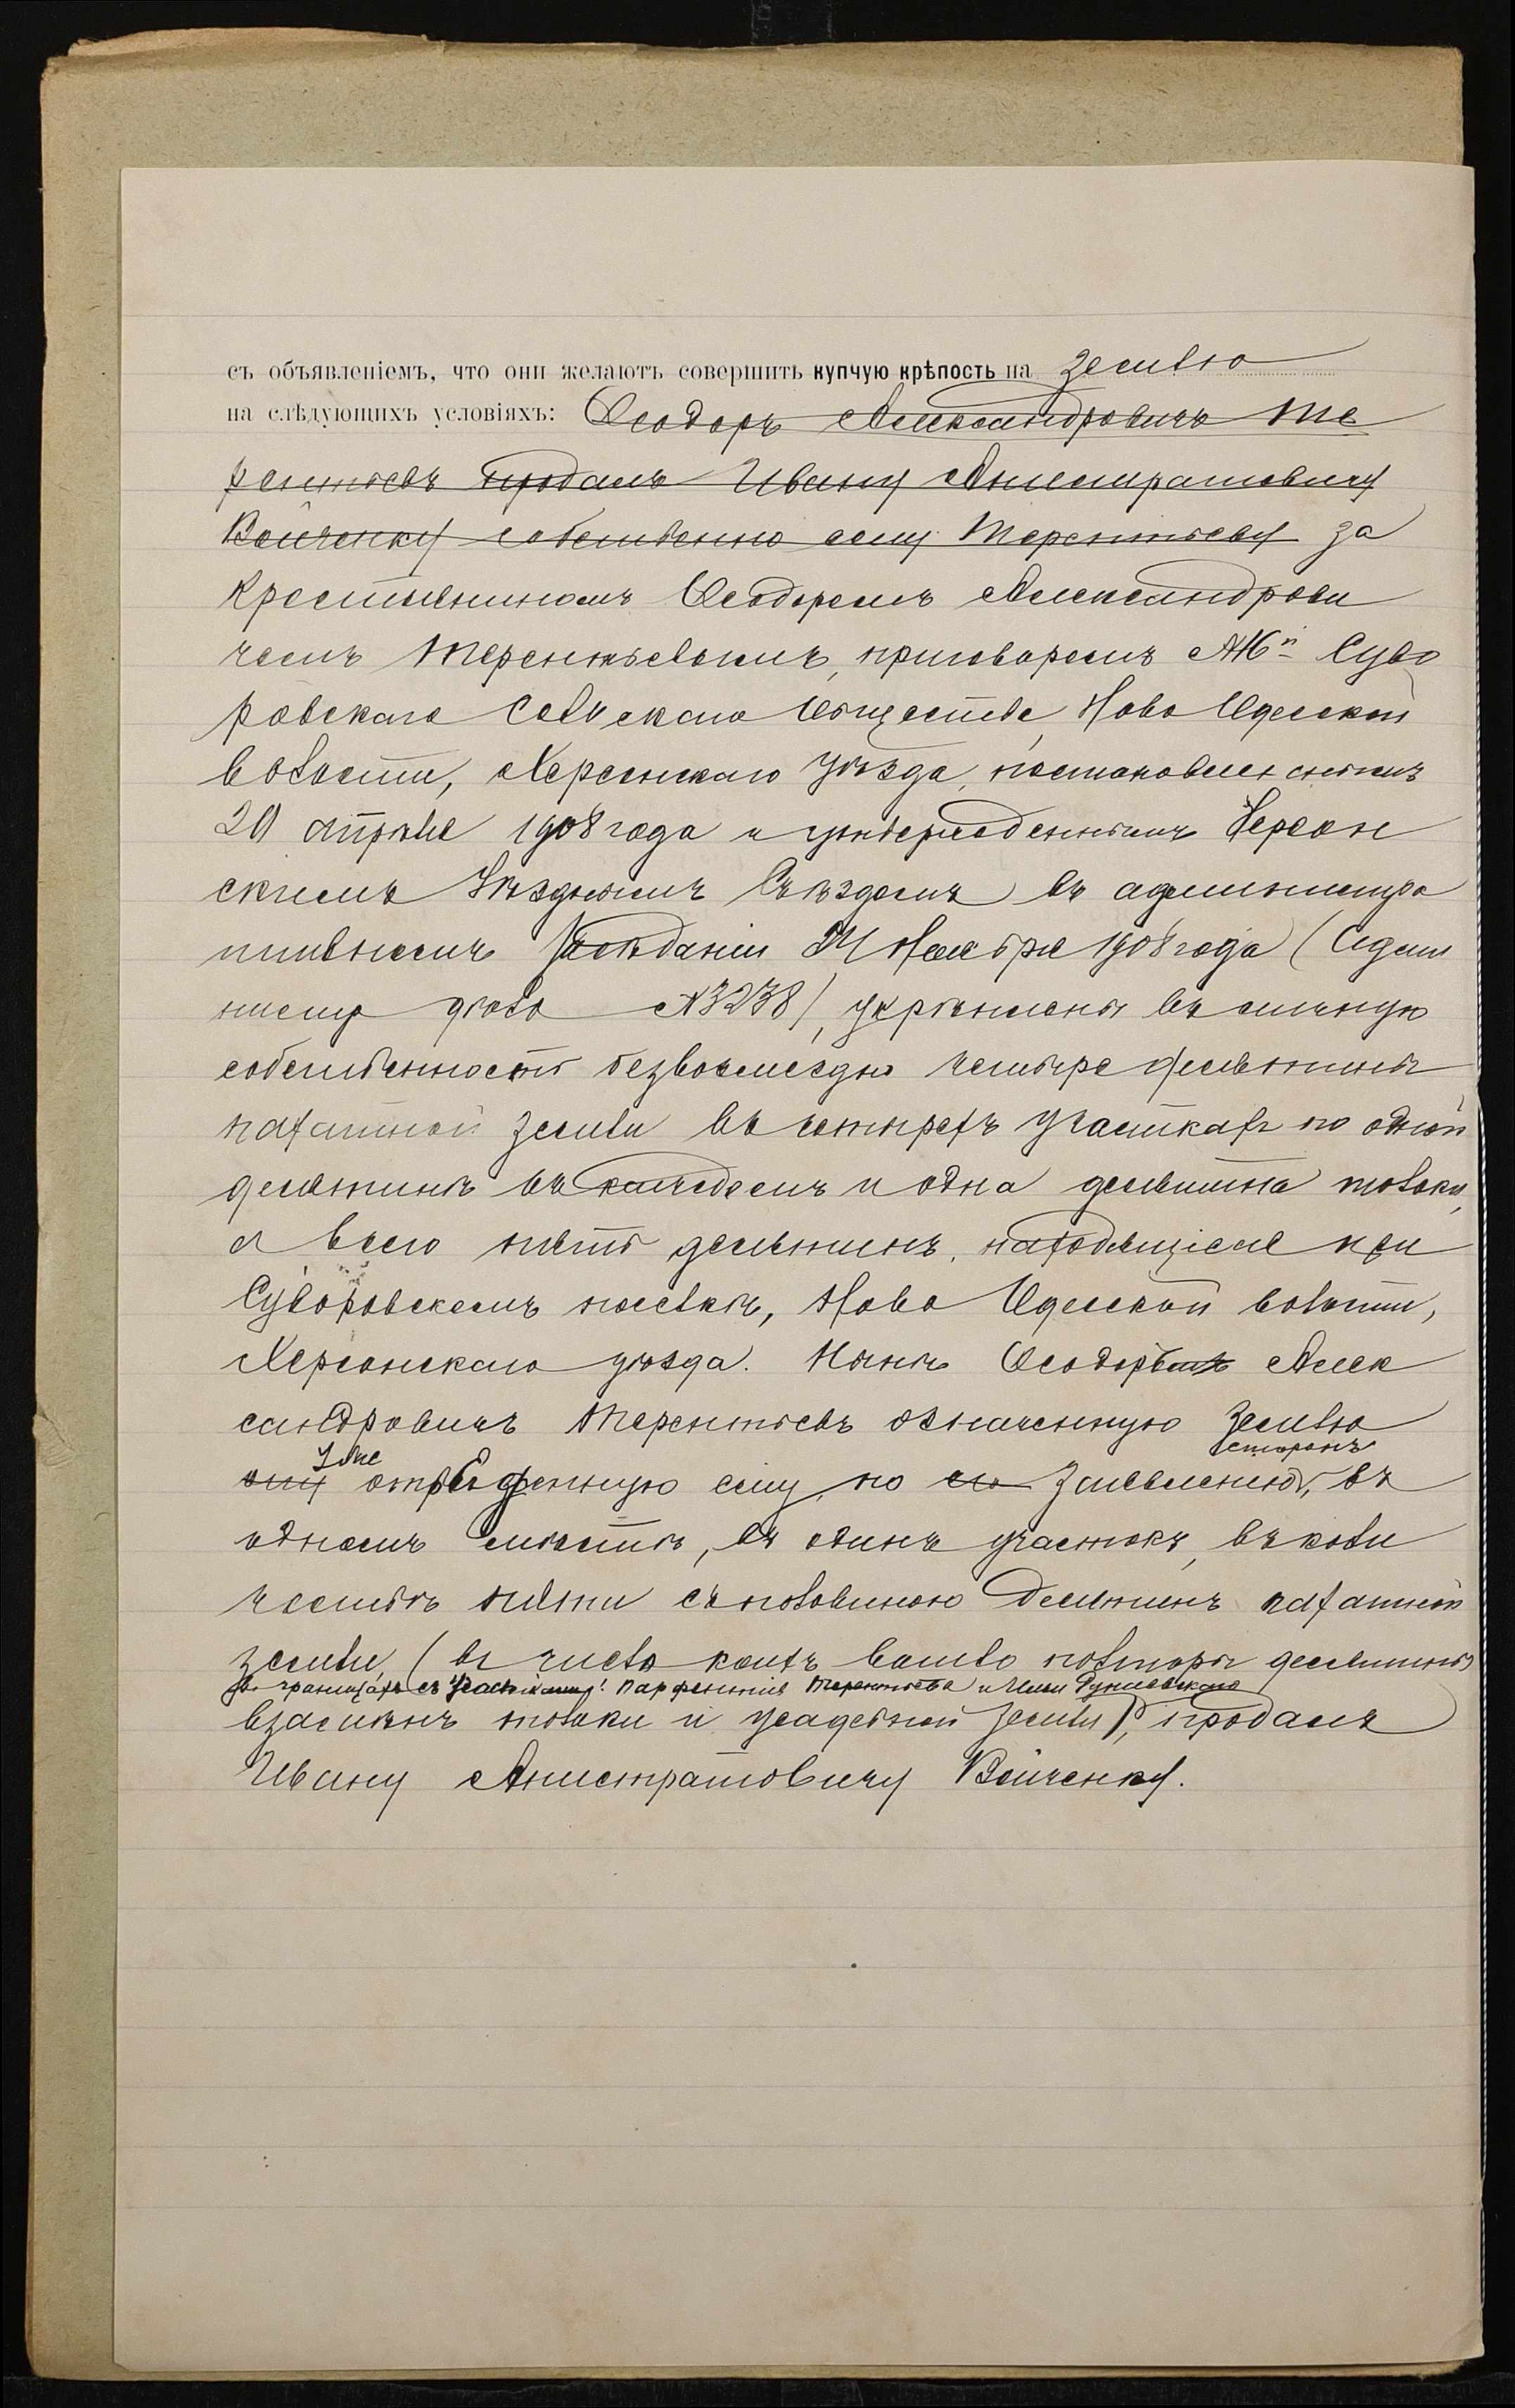 съ объявленіемъ, что они желаютъ совершить купчую крѣпость на землю
на слѣдующихъ условіяхъ: Ѳеодоръ Александровичъ Те
рентьевъ продалъ Ивану Анистратовичу
Войченку собственно ему Терентьеву за
крестьяниномъ Ѳеодоромъ Александрови
чемъ Терентьевымъ, приговоромъ № 6й Суво
ровскаго Сельскаго Общества, Ново Одесской
волости, Херсонскаго уѣзда, постановленнымъ
20 апрѣля 1908 года и утвержденнымъ Херсон
скимъ Уѣзднымъ Съѣздомъ въ администра
тивномъ засѣданіи Ноября 1908 года (
дѣло № 3238), укрѣплены въ личную
собственность безвозмездно четыре десятины
пахатной земли въ четырехъ участкахъ по одной
десятинѣ въ каждомъ и одна десятина толоки,
а всего пять десятинъ, находящіеся при
Суворовскомъ поселкѣ, Ново Одесской волости,
Херсонскаго уѣзда. Нынѣ Ѳеодоръ Алек
сандровичъ Терентьевъ означенную землю
уже сторонъ
ему отведенную ему, по его заявленію, въ
одномъ мѣстѣ, въ одинъ участокъ, въ коли
чествѣ пяти съ половиною десятинъ пахатной
земли, (въ число коихъ вошло полторы десятины
въ границахъ съ участками: Парфентія Терентьева и Ильи
взамѣнъ толоки и усадебной земли), продалъ
Ивану Анистратовичу Войченку.